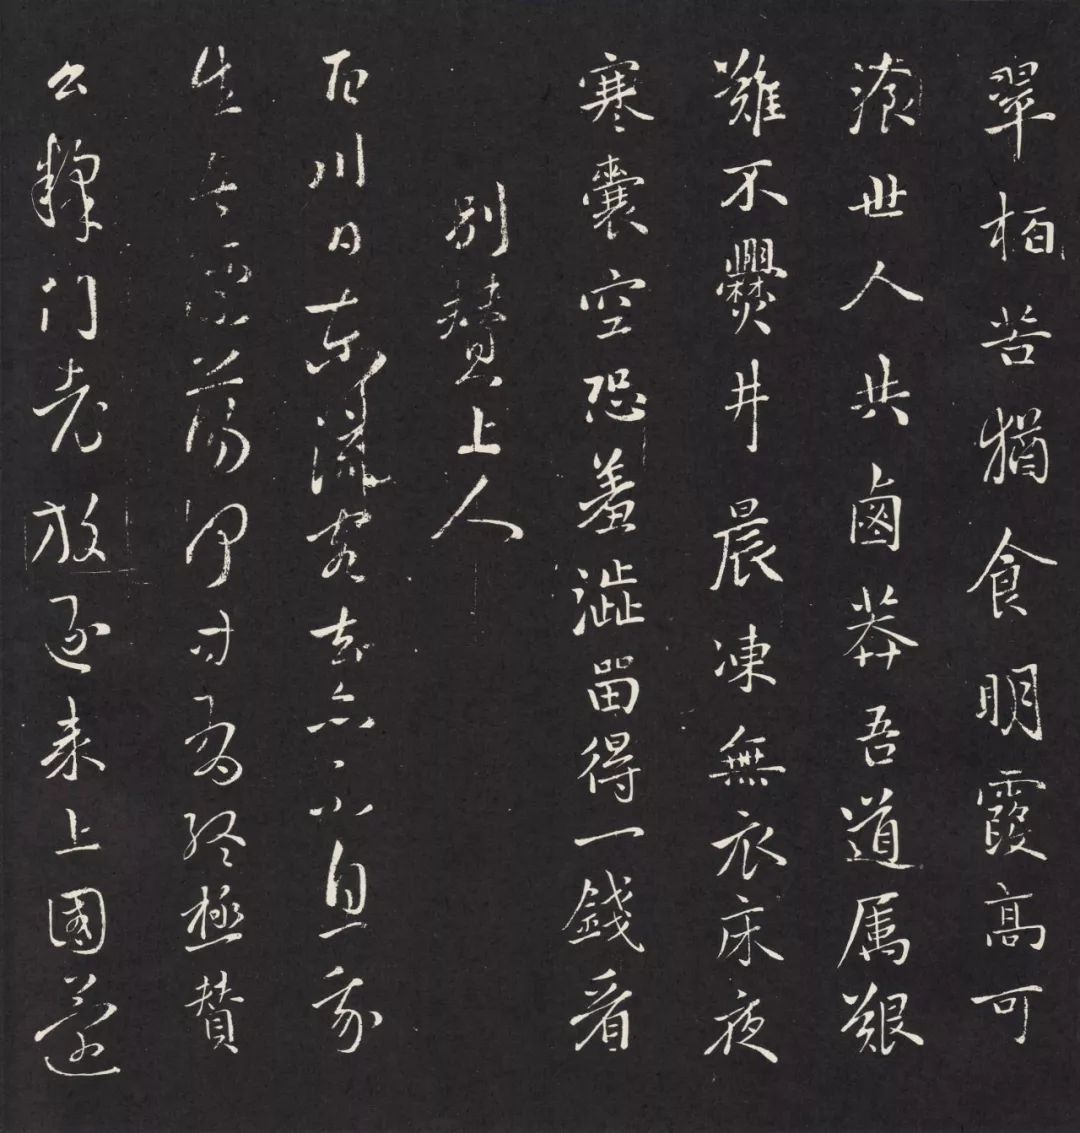 翠栢苦猶食明霞高可
湌世人共鹵莽吾道属艱
難不爨井晨凍無衣床夜
寒囊空恐羞澁留得一錢看
別贊上人
百川日東流客去亦不息我
生苦漂蕩何時有終極贊
公釋門老放逐來上國還